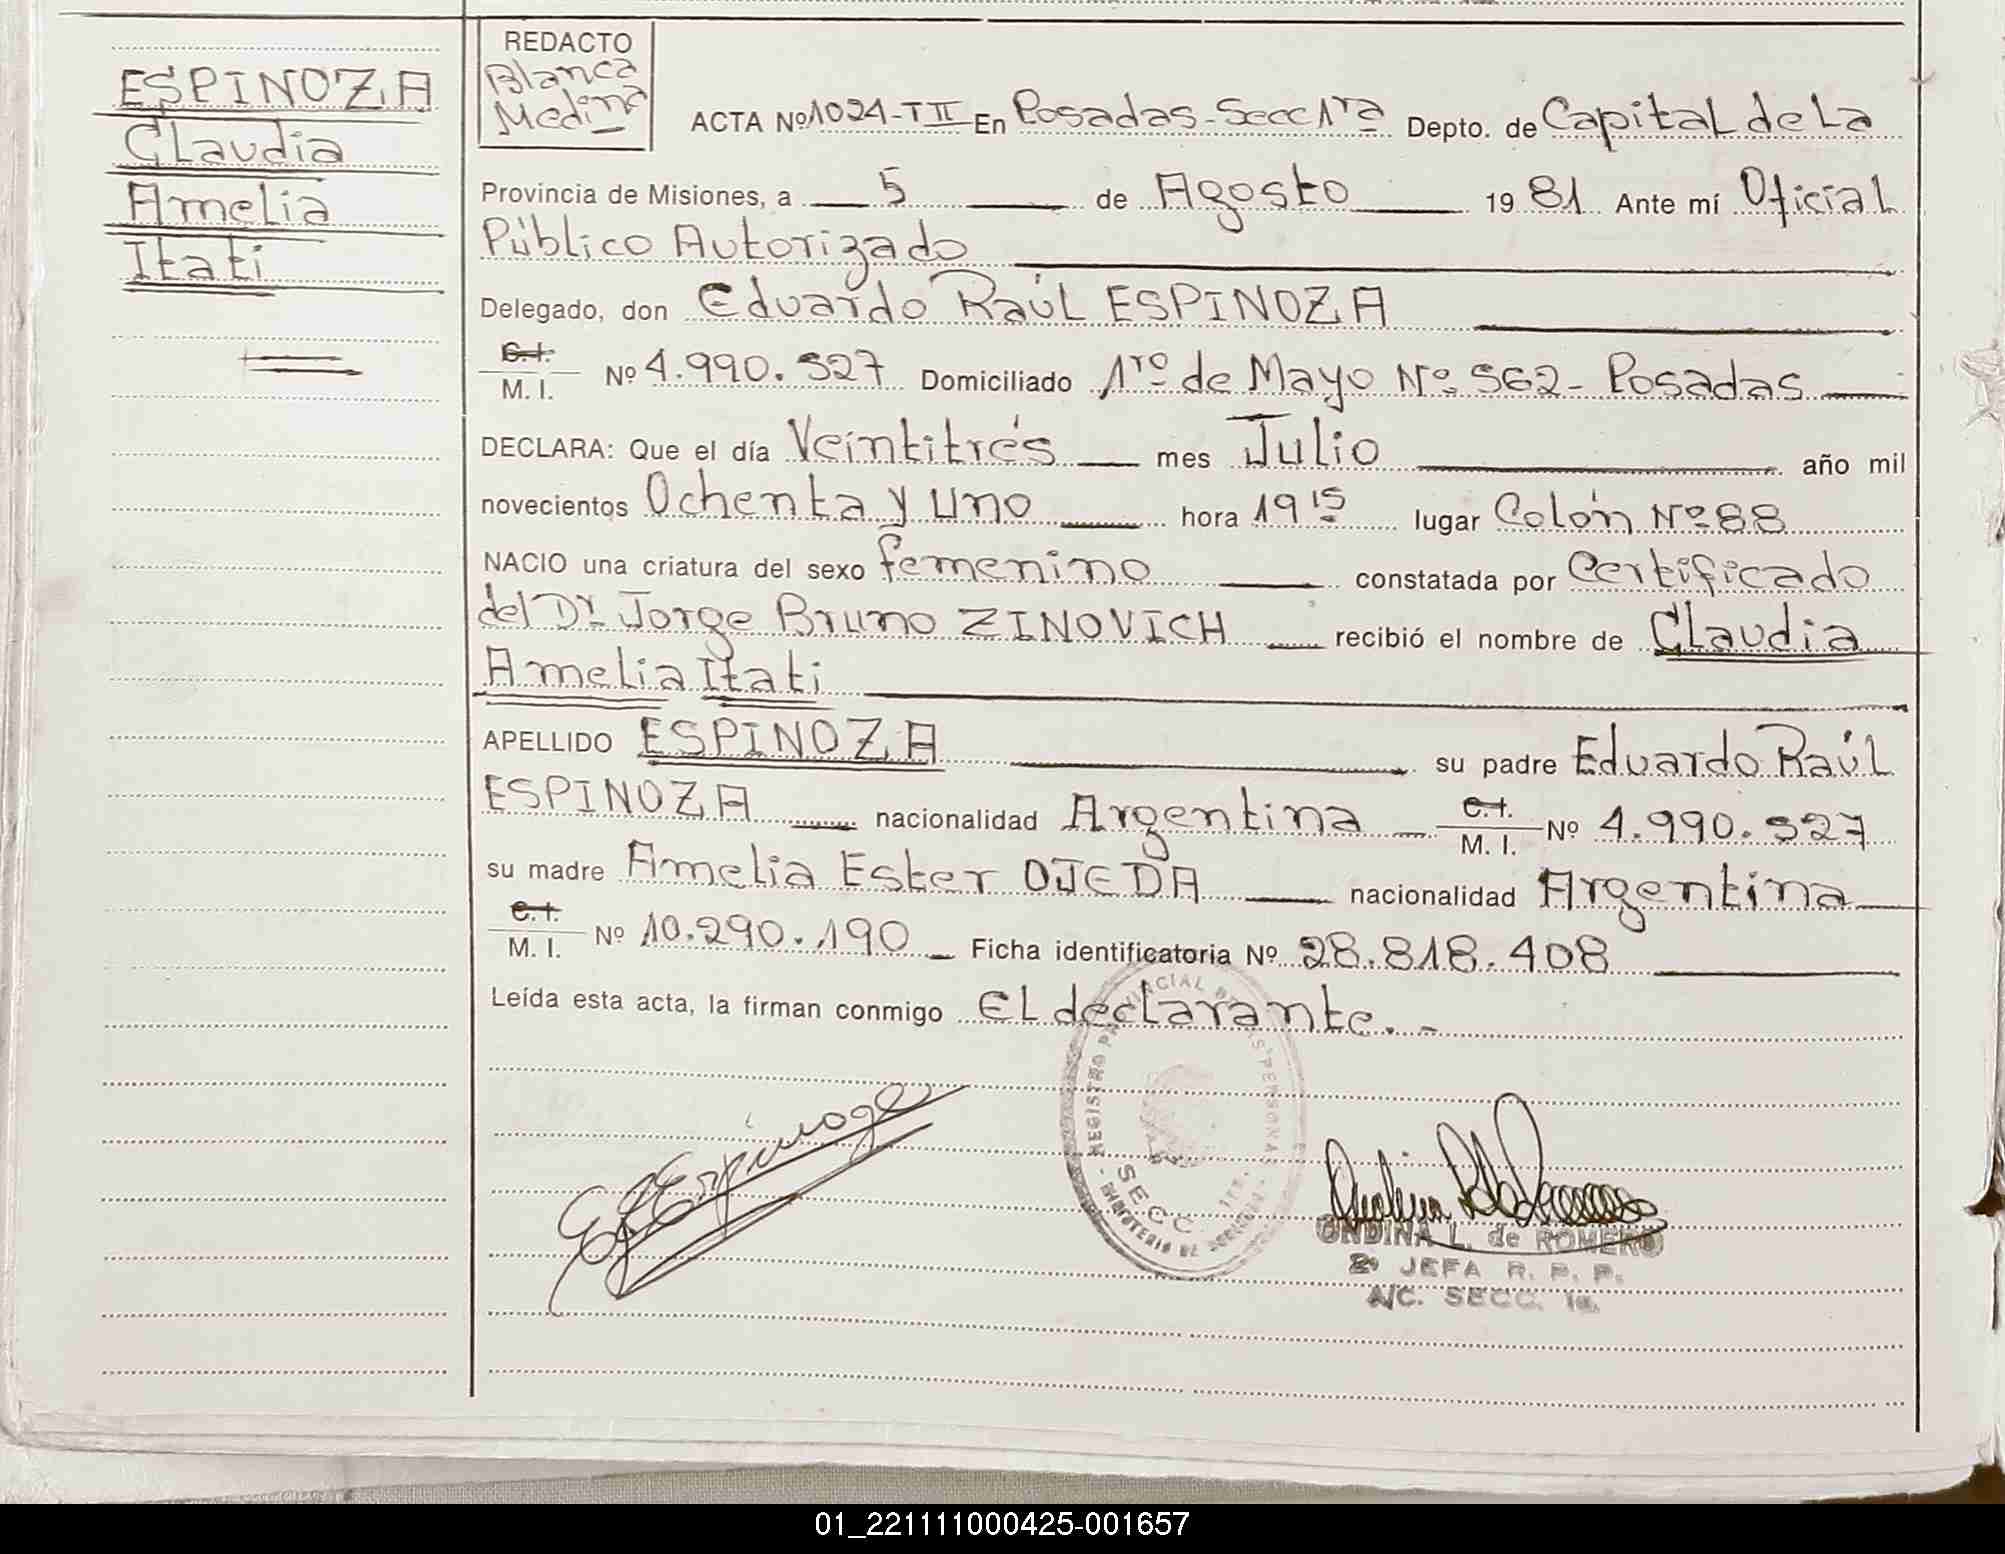 ESPINOZA
Claudia
Amelia
Itati
REDACTO
Blanca
Medina
ACTA Nº 1024-TII En Posadas-Secc 1ra Depto. de Capital de La
Provincia de Misiones, a 5 de Agosto 1981 Ante mí Oficial
Público Autorizado
Delegado, don Eduardo Raúl ESPINOZA
C.I. M. I. Nº 4.990.527 Domiciliado 1ro de Mayo Nº 562- Posadas
DECLARA: Que el día Veintitrés mes Julio año mil
novecientos Ochenta y uno hora 19 15 lugar Colón Nº 88
NACIO una criatura del sexo femenino constatada por Certificado
del Dr. Jorge Bruno ZINOVICH recibió el nombre de Claudia
Amelia Itati
APELLIDO ESPINOZA su padre Eduardo Raúl
ESPINOZA nacionalidad Argentina C.I. M. I. Nº 4.990.527
su madre Amelia Ester OJEDA nacionalidad Argentina
C.I. M. I. Nº 10.290.190 Ficha identificatoria Nº 28.818.408
Leída esta acta, la firman conmigo El declarante.-
REGISTRO PROVINCIAL DE LAS PERSONAS
SECC. 1ra.
MINISTERIO DE GOBIERNO
E R Espinoza
ONDINA L. de ROMERO
2ª JEFA R. P. P.
A/C. SECC. 1a.
01_221111000425-001657